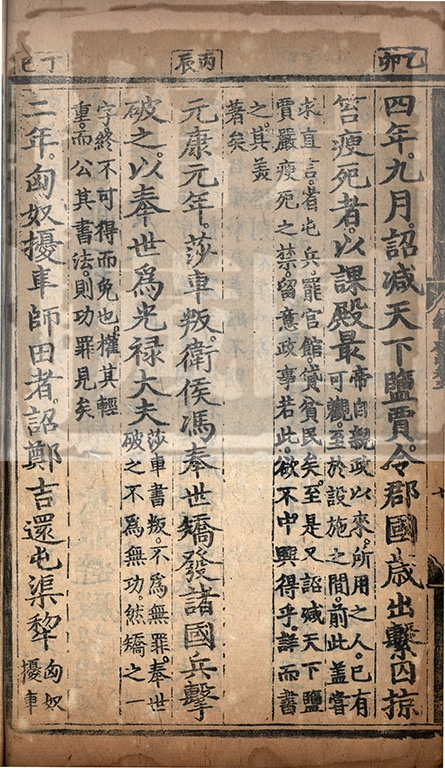 乙卯
四年。九月。詔减天下鹽賈。令郡國歲出繫囚掠
笞瘦死者。以課殿最
帝自親政以來。所用之人。已有
可觀。至於設施之間。前此盖嘗
求直言。省屯兵。罷官館貸貧民矣。至是又詔减天下鹽
賈嚴瘦死之禁。留意政事若此。欲不中興得乎。詳而書
之。其美
著矣
丙辰
元康元年。莎車叛。衛侯馮奉世矯發諸國兵擊
破之。以奉世爲光禄大夫
莎車書叛。不爲無罪。奉世
破之不爲無功。然矯之一
字終不可得而免也。權其輕
重。而公其書法。則功罪見矣
丁巳
二年。匈奴擾車師田者。詔鄭吉還屯渠犂
匈奴
擾車